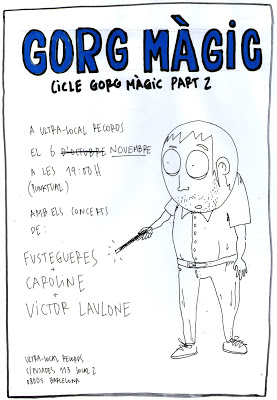 GORG MÀGIC
CICLE GORG MÀGIC PART 2
A ULTRA-LOCAL RECORDS
EL 6 D'OCTUBRE NOVEMBRE
A LES 19:00H
(PUNTUAL)
AMB ELS CONCERTS
DE:
FUSTEGUERES
+
CAROLINE
+
VICTOR LAVLONE
ULTRA-LOCAL RECORDS
C/PUJADES 113 LOCAL 2
08005 BARCELONA